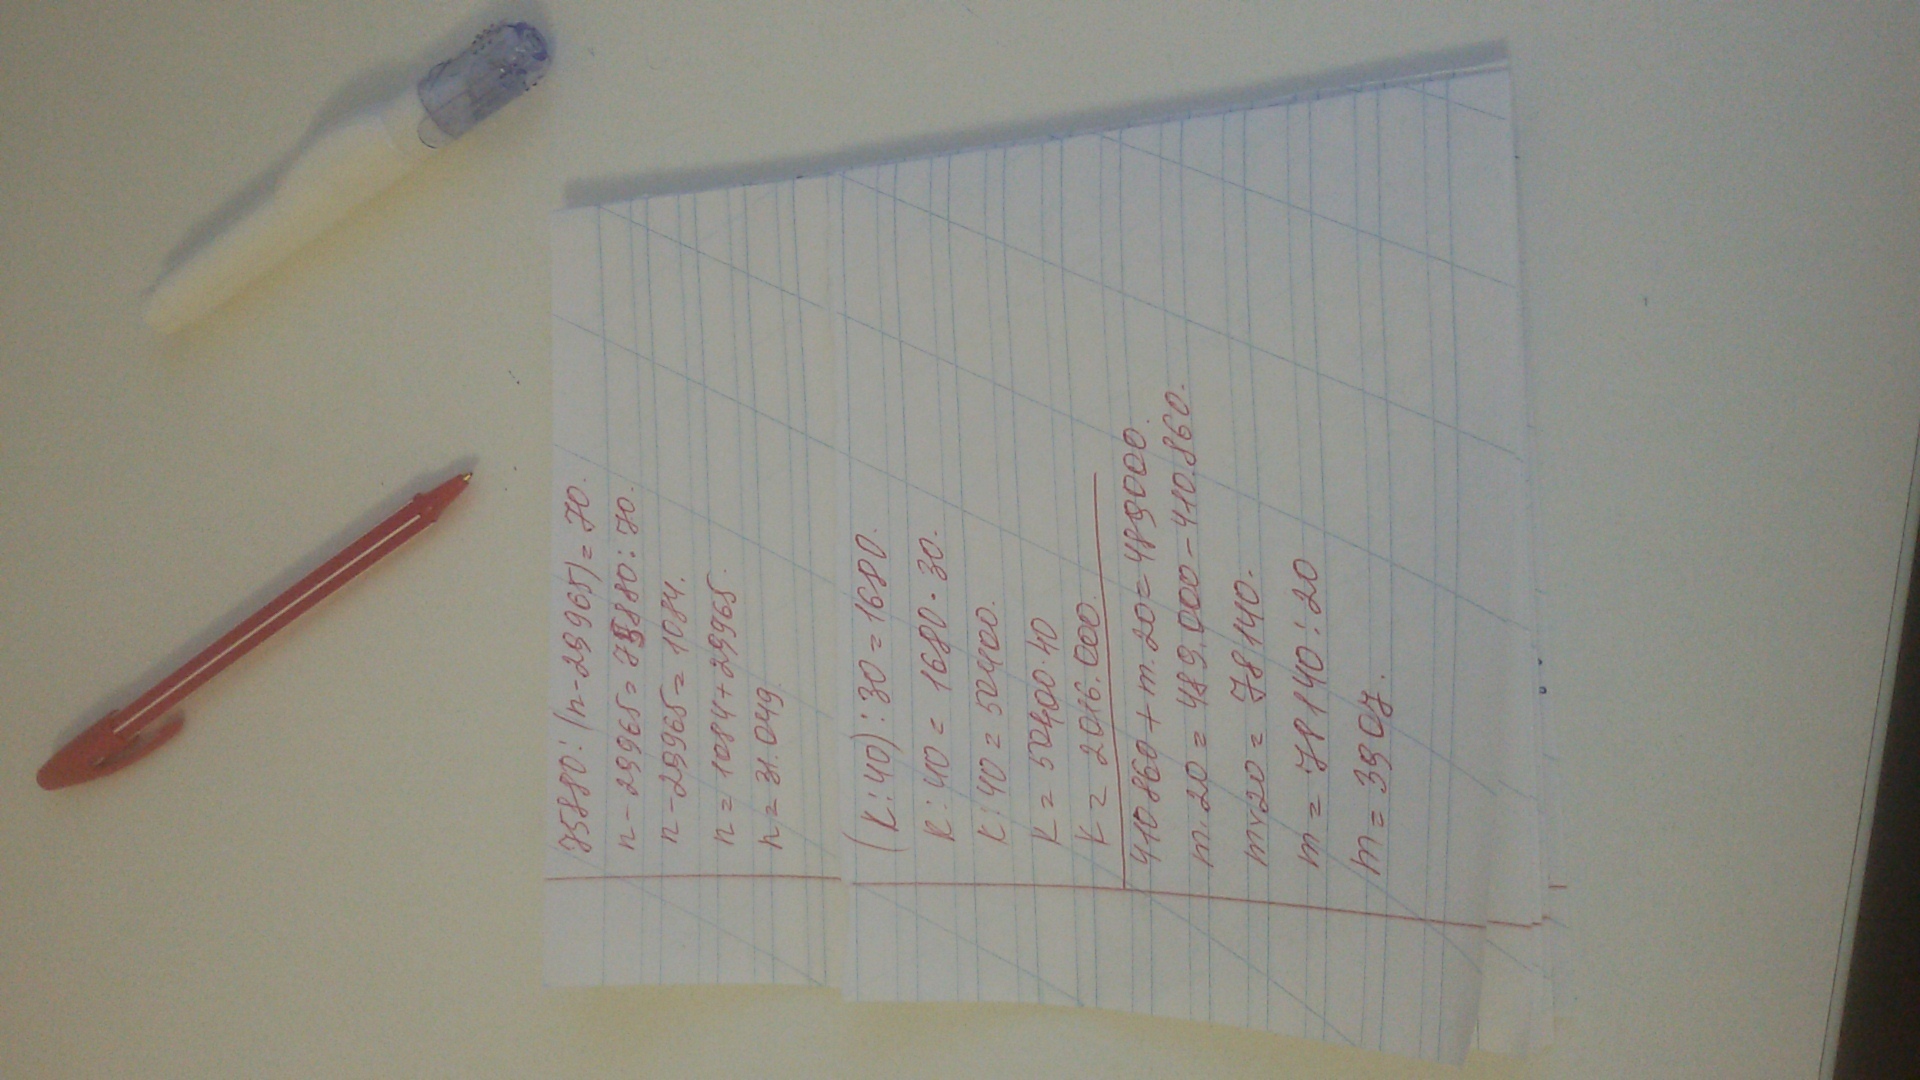 75880:(n-29965)=70.
n-29965=75880:70.
n-29965=1084.
n=1084+29965.
n=31.049.
(к:40):30=1680.
к:40=1680·30.
к:40=50400.
к=50400·40
к=2016.000.
410.860+m.20=489000.
m.20=489.000-410.860.
m·20=78140.
m=78140:20
m=3907.